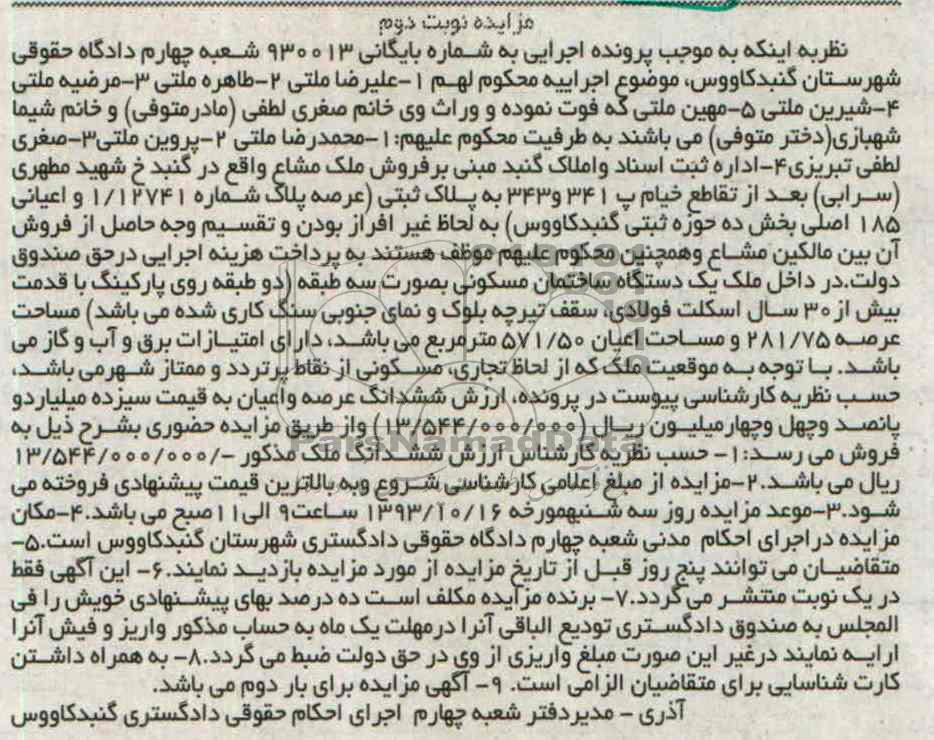 مزایده نوبت دوم
نظربه اینکه به موجب پرونده اجرایی به شماره بایگانی ۹۳۰۰۱۳ شعبه چهارم دادگاه حقوقی
شهرستان گنبدکاووس، موضوع اجراییه محکوم لهم ۱-علیرضا ملتی ۲-طاهره ملتی ۳-مرضیه ملتی
۴-شیرین ملتی ۵-مهین ملتی که فوت نموده و وراث وی خانم صغری لطفی (مادرمتوفی) و خانم شیما
شهبازی(دختر متوفی) می باشند به طرفیت محکوم علیهم:۱-محمدرضا ملتی ۲-پروین ملتی۳-صغری
لطفی تبریزی۴-اداره ثبت اسناد واملاک گنبد مبنی برفروش ملک مشاع واقع در گنبد خ شهید مطهری
(سرابی) بعد از تقاطع خیام پ ۳۴۱ و۳۴۳ به پلاک ثبتی (عرصه پلاک شماره ۱/۱۲۷۴۱ و اعیانی
۱۸۵ اصلی بخش ده حوزه ثبتی گنبدکاووس) به لحاظ غیر افراز بودن و تقسیم وجه حاصل از فروش
آن بین مالکین مشاع وهمچنین محکوم علیهم موظف هستند به پرداخت هزینه اجرایی درحق صندوق
دولت.در داخل ملک یک دستگاه ساختمان مسکونی بصورت سه طبقه (دو طبقه روی پارکینگ با قدمت
بیش از ۳۰ سال اسکلت فولادی، سقف تیرچه بلوک و نمای جنوبی سنگ کاری شده می باشد) مساحت
عرصه ۲۸۱/۷۵ و مساحت اعیان ۵۷۱/۵۰ مترمربع می باشد، دارای امتیازات برق و آب و گاز می
باشد. با توجه به موقعیت ملک که از لحاظ تجاری، مسکونی از نقاط پرتردد و ممتاز شهرمی باشد،
حسب نظریه کارشناسی پیوست در پرونده، ارزش ششدانگ عرصه واعیان به قیمت سیزده میلیاردو
پانصد وچهل وچهارمیلیون ریال (۱۳/۵۴۴/۰۰۰/۰۰۰) واز طریق مزایده حضوری بشرح ذیل به
فروش می رسد:۱- حسب نظریه کارشناس ارزش ششدانگ ملک مذکور -/۱۳/۵۴۴/۰۰۰/۰۰۰
ریال می باشد.۲-مزایده از مبلغ اعلامی کارشناسی شروع وبه بالاترین قیمت پیشنهادی فروخته می
شود.۳-موعد مزایده روز سه شنبهمورخه ۱۳۹۳/۱۰/۱۶ ساعت۹ الی۱۱صبح می باشد.۴-مکان
مزایده دراجرای احکام مدنی شعبه چهارم دادگاه حقوقی دادگستری شهرستان گنبدکاووس است.۵-
متقاضیان می توانند پنج روز قبل از تاریخ مزایده از مورد مزایده بازدید نمایند.۶- این آگهی فقط
در یک نوبت منتشر می گردد.۷- برنده مزایده مکلف است ده درصد بهای پیشنهادی خویش را فی
المجلس به صندوق دادگستری تودیع الباقی آنرا درمهلت یک ماه به حساب مذکور واریز و فیش آنرا
ارایه نمایند درغیر این صورت مبلغ واریزی از وی در حق دولت ضبط می گردد.۸- به همراه داشتن
کارت شناسایی برای متقاضیان الزامی است. ۹- آگهی مزایده برای بار دوم می باشد.
آذری - مدیردفتر شعبه چهارم اجرای احکام حقوقی دادگستری گنبدکاووس
ParsNamadData